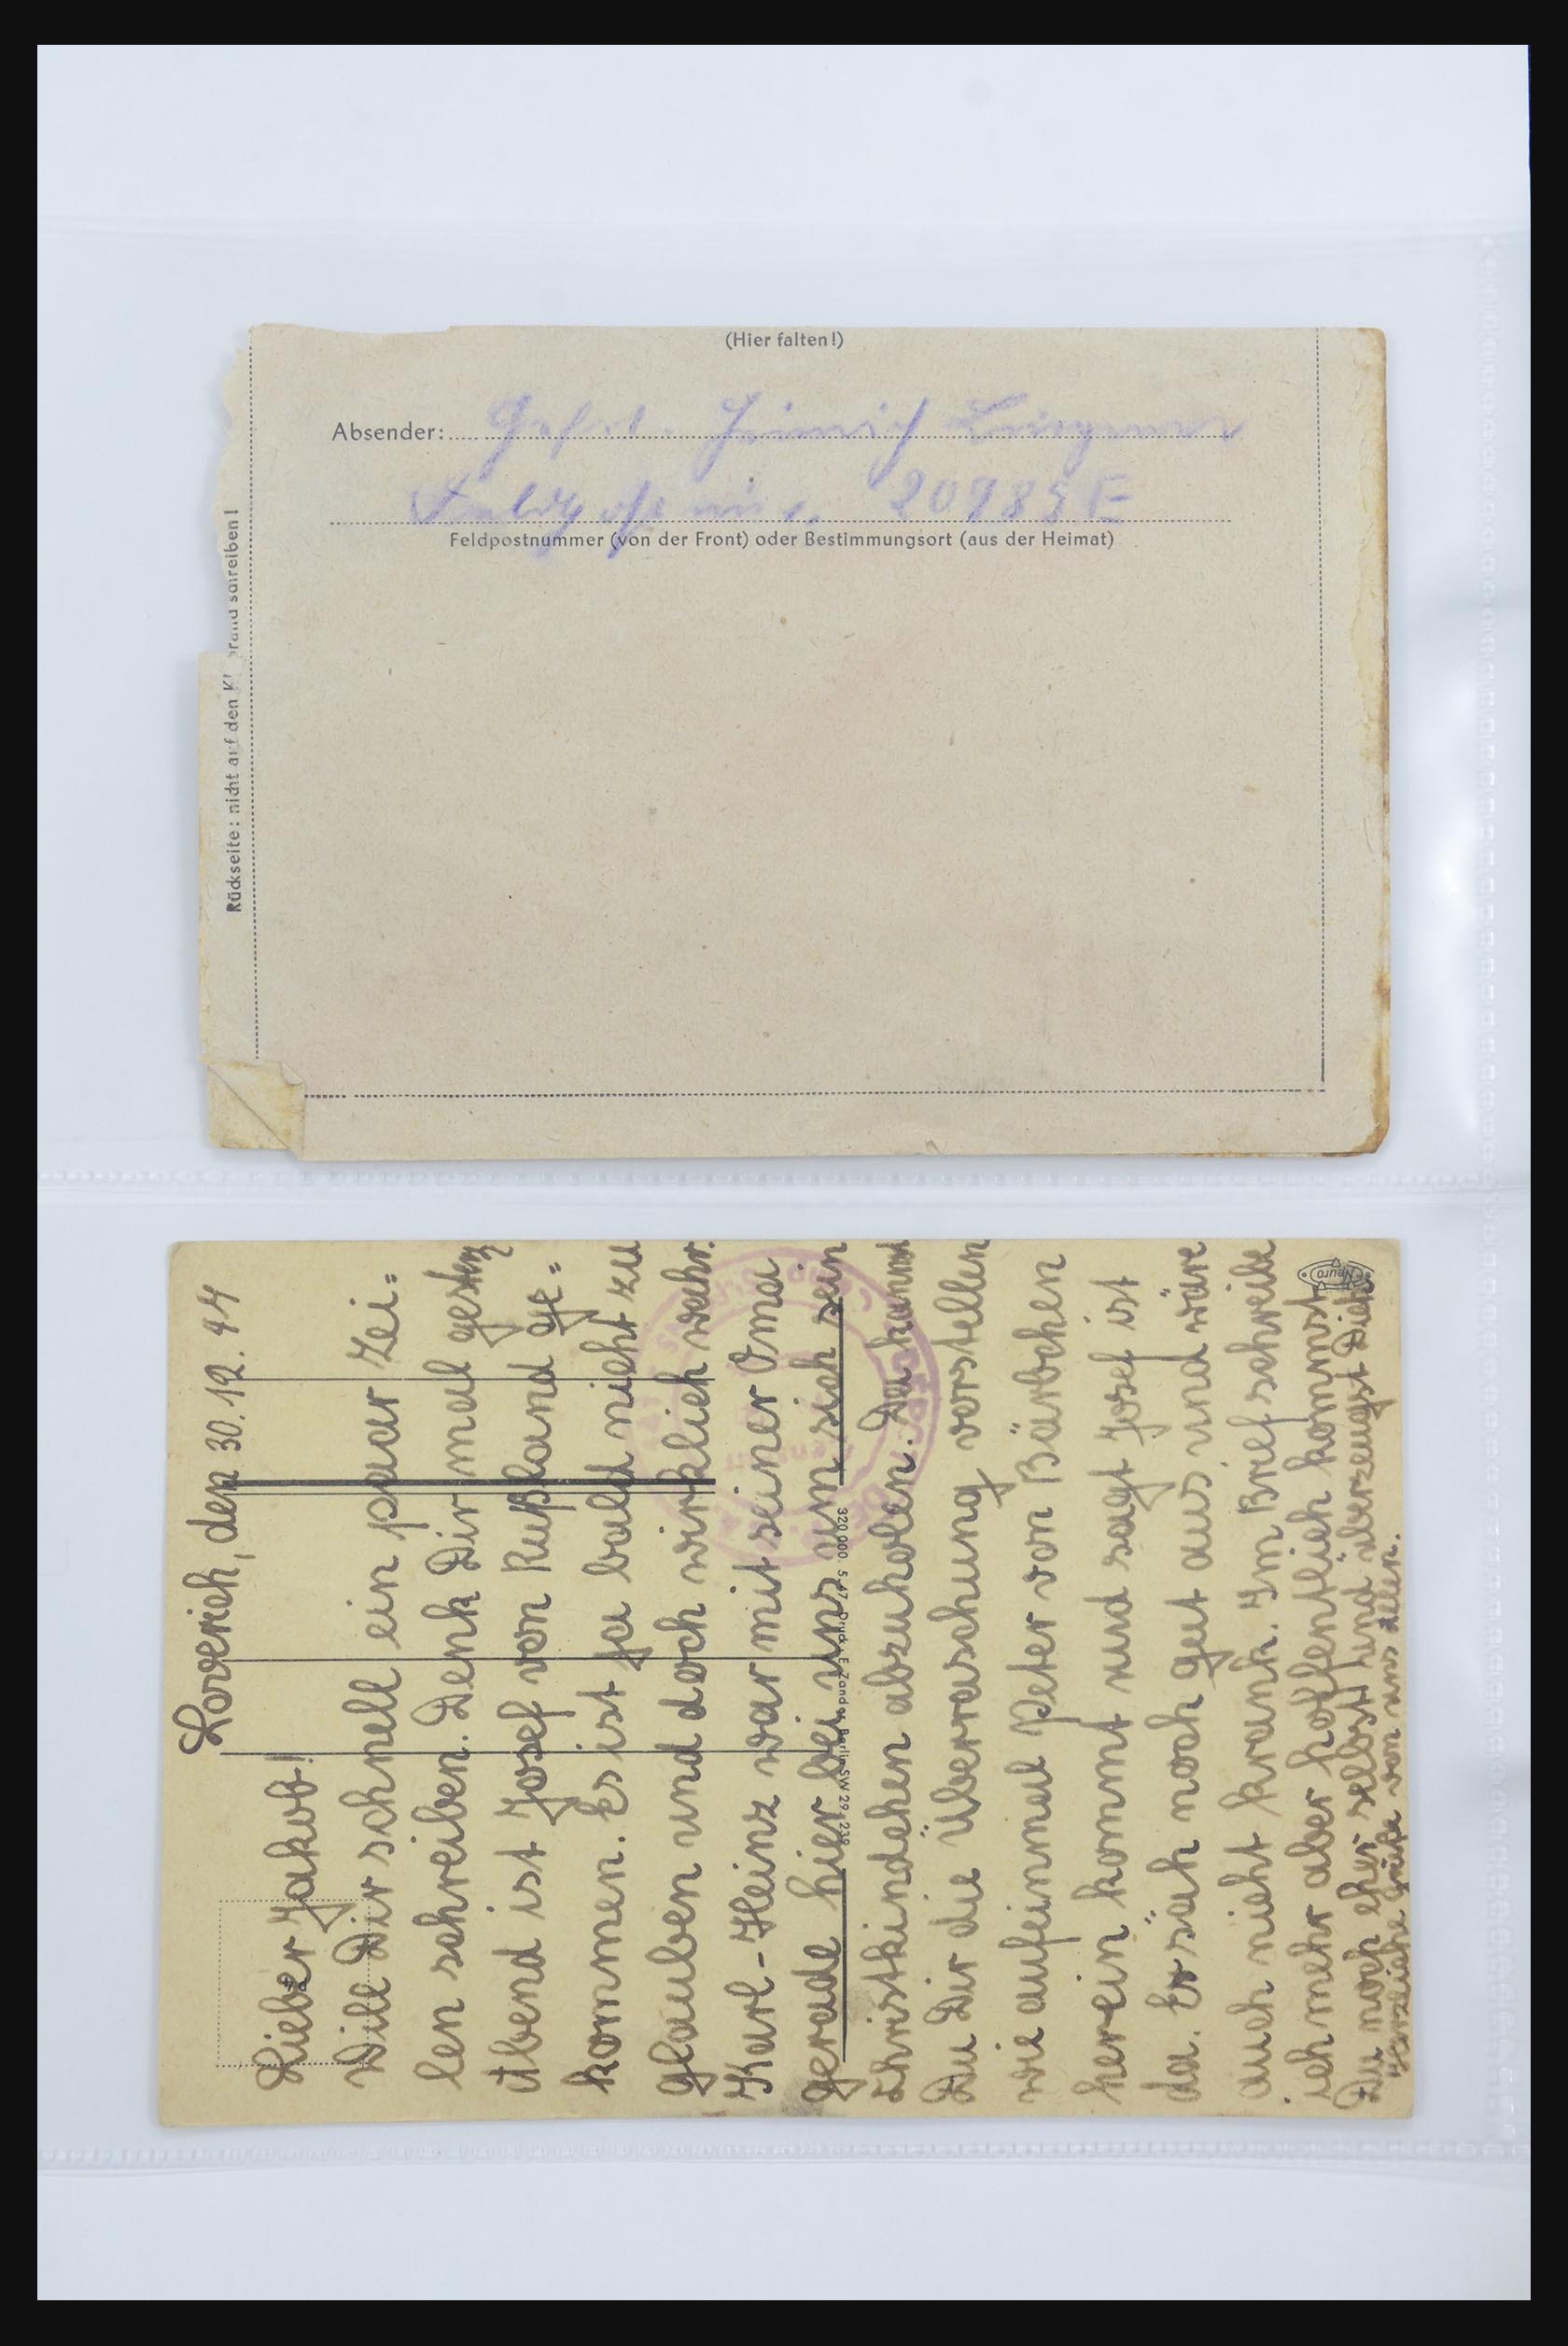 (Hier falten!)
Absender: Gefrt. Heinrich
20985 E
Feldpostnummer (von der Front) oder Bestimmungsort (aus der Heimat)
Rückseite: nicht auf den Kl rand schreiben!
Loverich, den 30. 12. 44
Lieber Jakob!
Will Dir schnell ein paar Zei=
len schreiben. Denk Dir mal gestern
Abend ist Josef von Rußland ge=
kommen. Es ist ja bald nicht zu
glauben und doch wirklich wahr.
Karl-Heinz war mit seiner Oma
gerade hier bei uns um sich sein
Christkindchen abzuholen. Da kannst
Du Dir die Überraschung vorstellen
wie aufeinmal Peter von Bärbchen
herein kommt und sagt Josef ist
da. Er säh noch gut aus und wäre
auch nicht krank. Im Brief schreibe
ich mehr aber hoffentlich kommst
Du noch eher selbst und überzeugst Dich.
Herzliche Grüße von uns allen.
320 000. 5. 47. Druck: E. Zander, Berlin SW 29, 239
Neuro